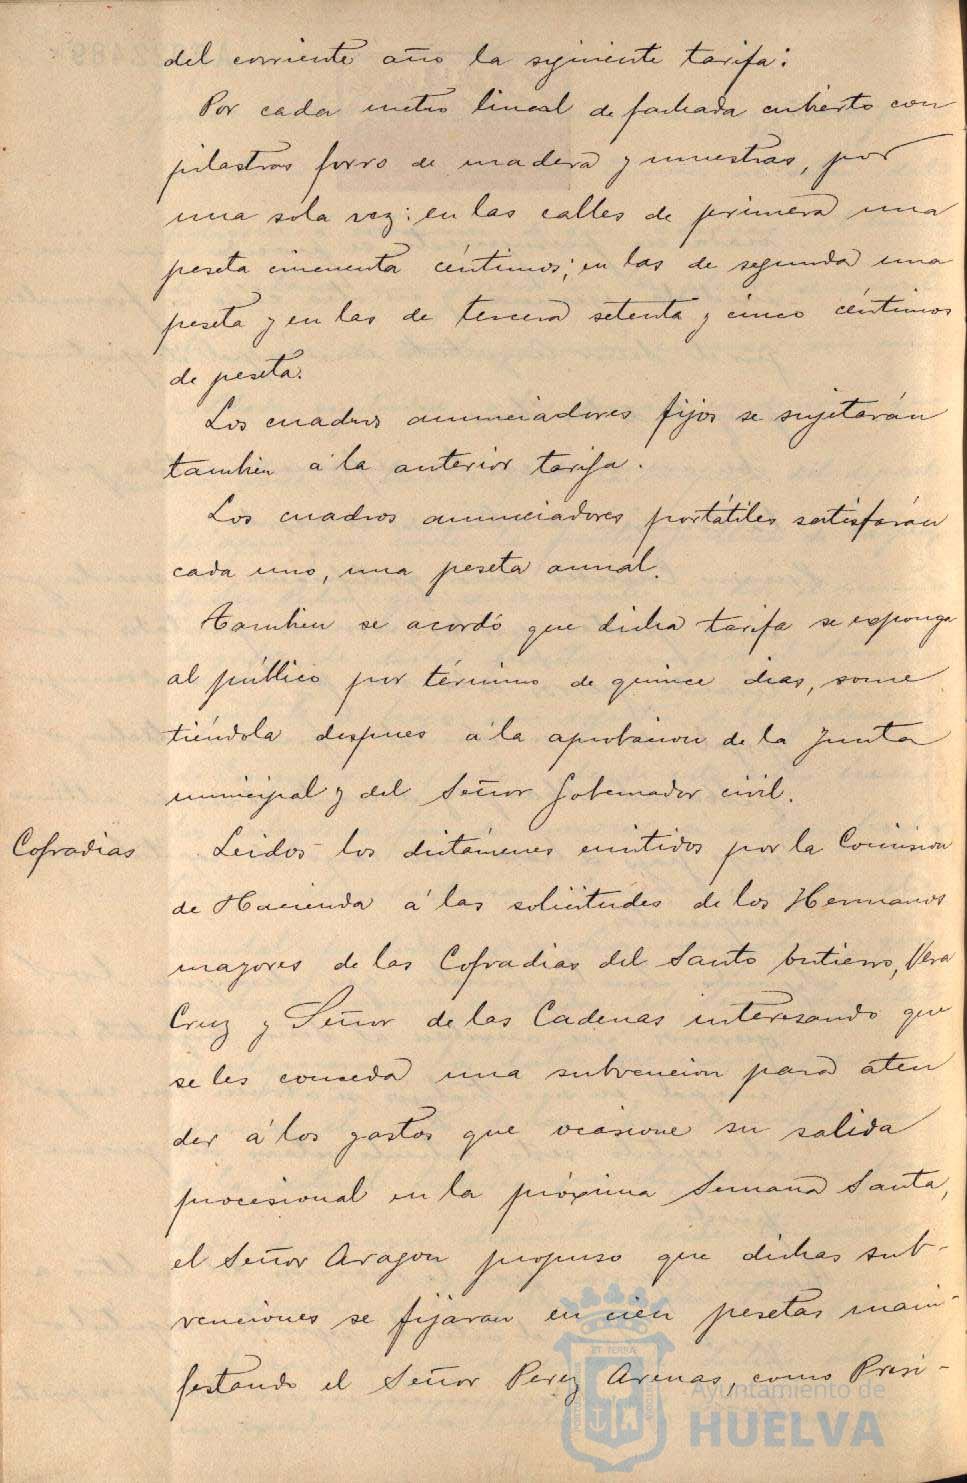 del corriente año la siguiente tarifa:
Por cada metro lineal de fachada cubierto con
pilastras forro de madera y muestras, por
una sola vez: en las calles de primera una
peseta cincuenta céntimos; en las de segunda una
peseta y en las de tercera setenta y cinco céntimos
de peseta.
Los cuadros anunciadores fijos se sujetarán
tambien á la anterior tarifa.
Los cuadros anunciadores portátiles satisfarán
cada uno, una peseta anual.
Tambien se acordó que dicha tarifa se exponga
al público por término de quince dias, some
tiéndola despues á la aprobacion de la Junta
municipal y del Señor Gobernador civil.
Cofradias
Leidos los dictámenes emitidos por la Comision
de Hacienda á las solicitudes de los Hermanos
mayores de las Cofradias del Santo Entierro, Vera
Cruz y Señor de las Cadenas interesando que
se les conceda una subvencion para aten
der á los gastos que ocasione su salida
procesional en la próxima Semana Santa,
el Señor Aragon propuso que dichas sub-
venciones se fijáran en cien pesetas mani-
festando el Señor Perez Arenas, como Presi-
Ayuntamiento de
HUELVA